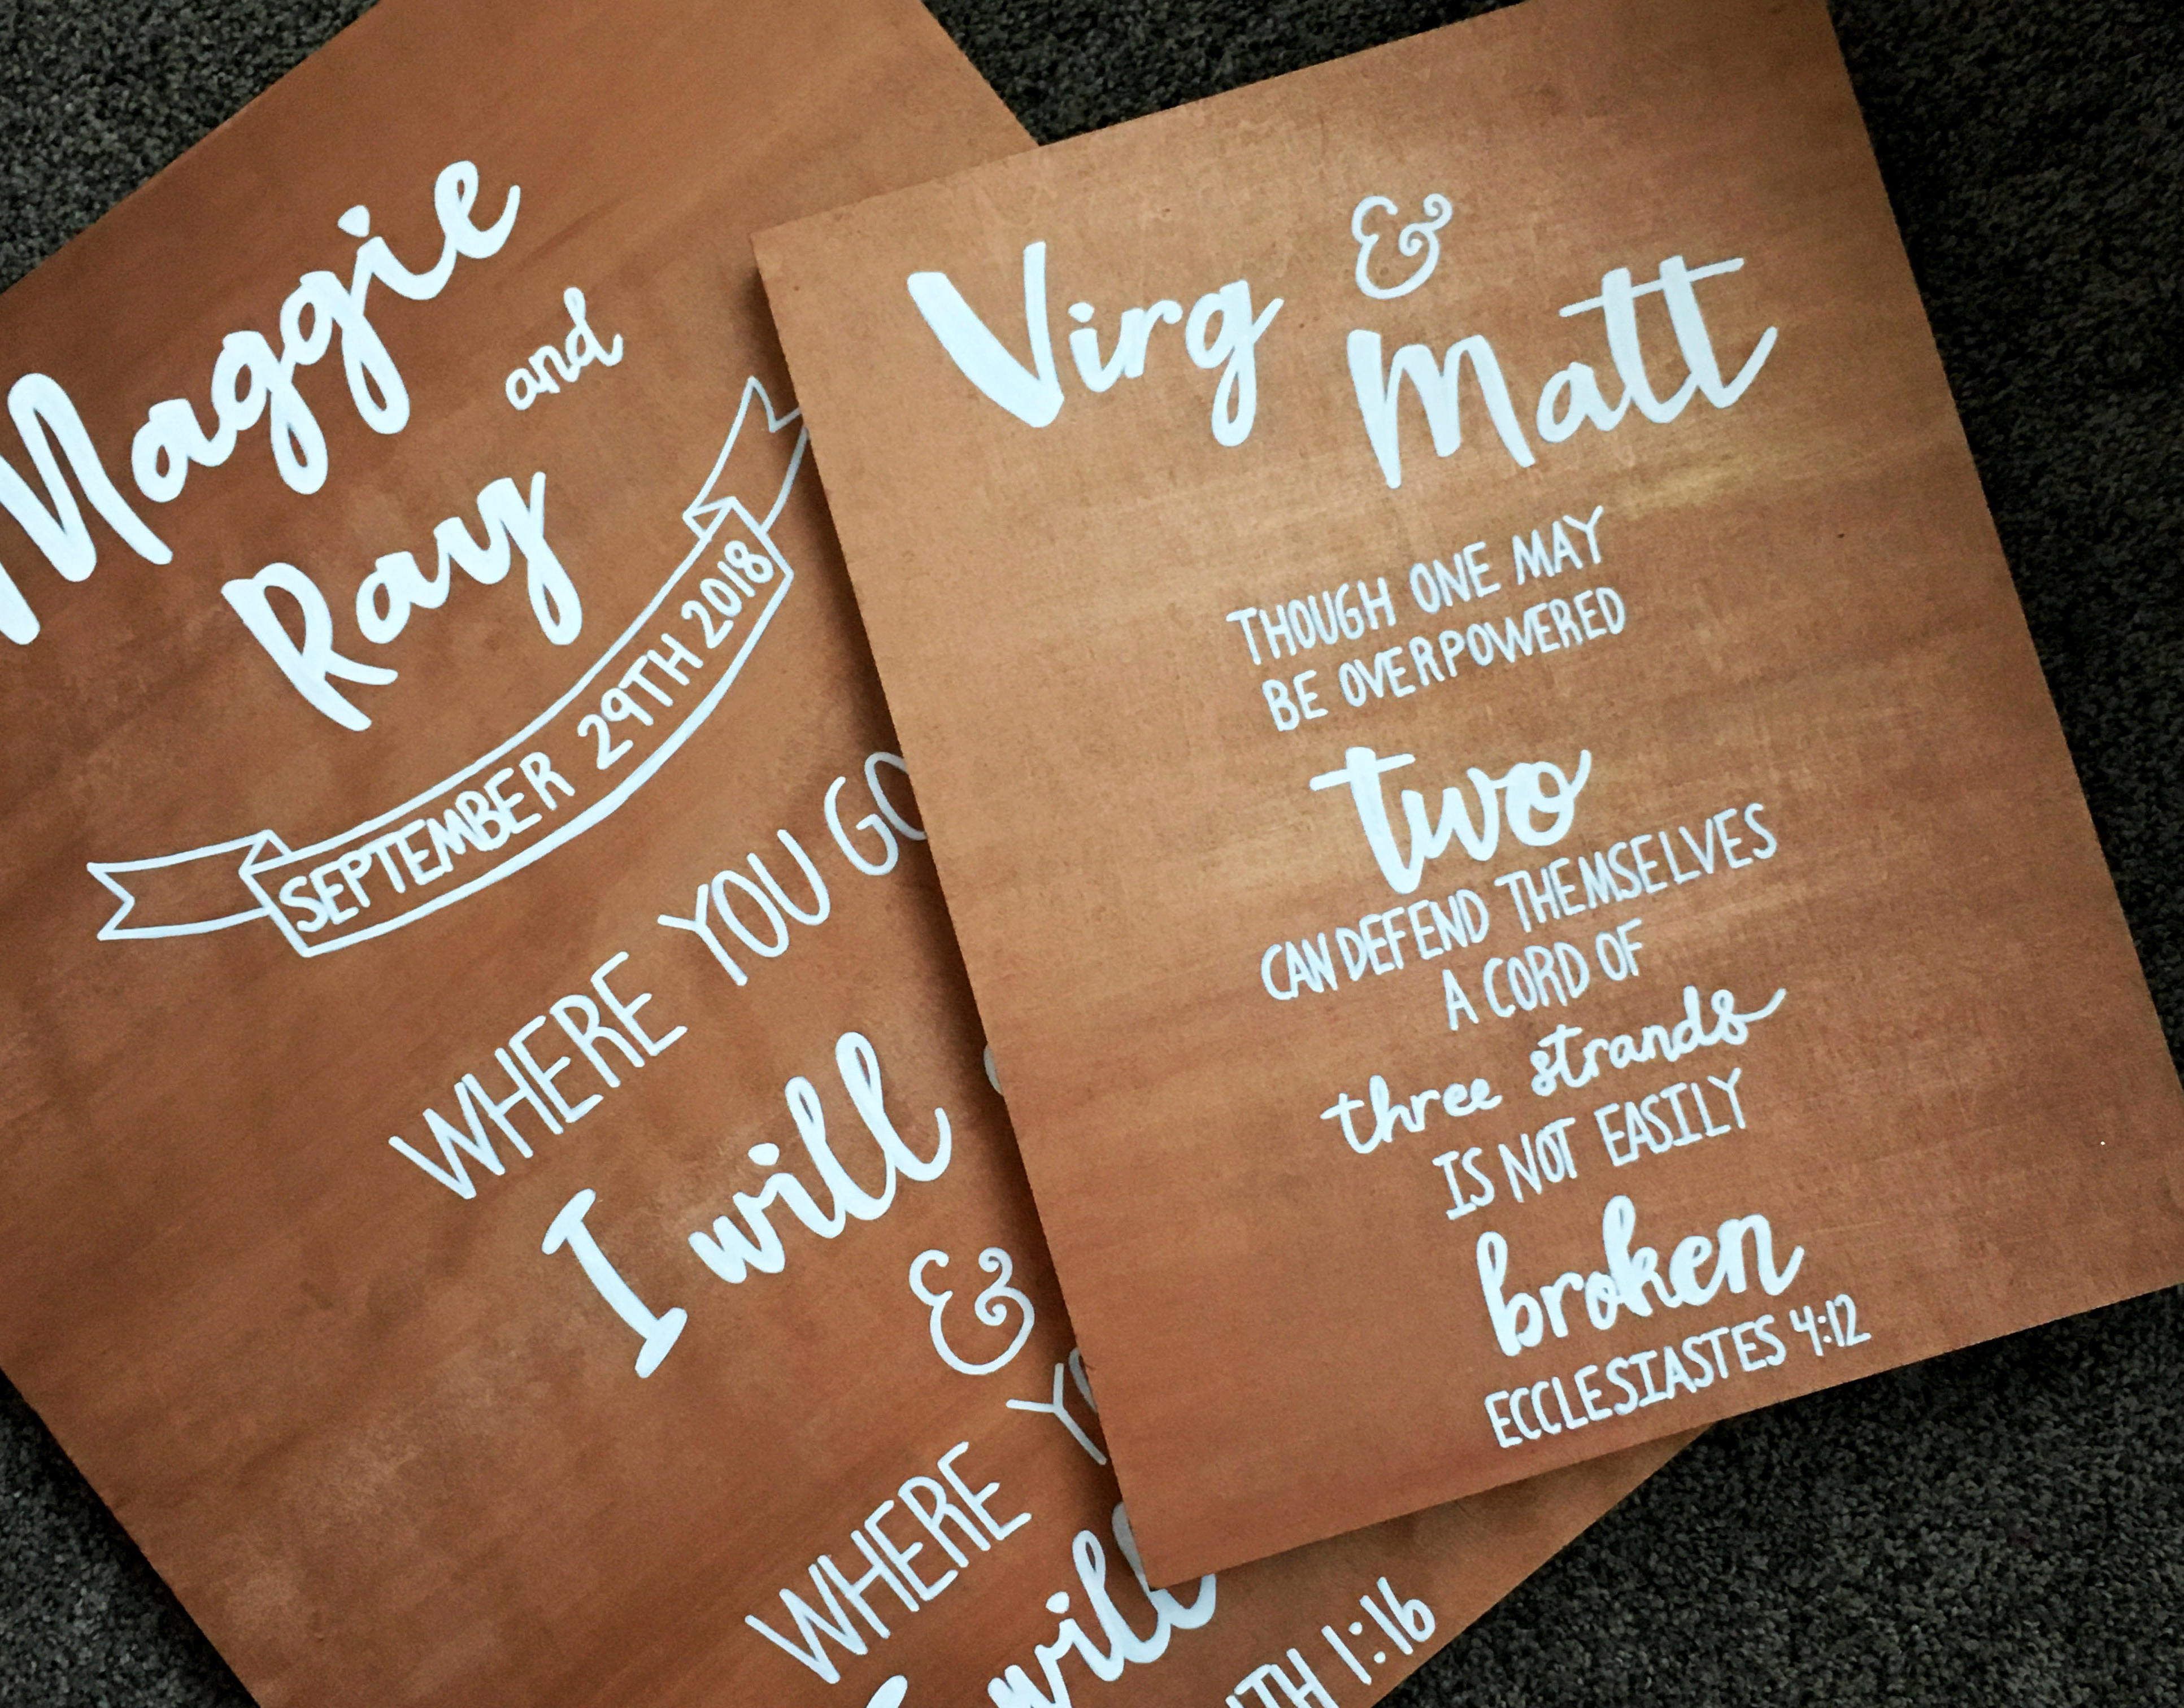 Maggie
and
Ray
SEPTEMBER 29TH 2018
WHERE YOU GO
I will
&
WHERE
will
1:16
Virg &
Matt
THOUGH ONE MAY
BE OVERPOWERED
two
CAN DEFEND THEMSELVES
A CORD OF
three strands
IS NOT EASILY
broken
ECCLESIASTES 4:12